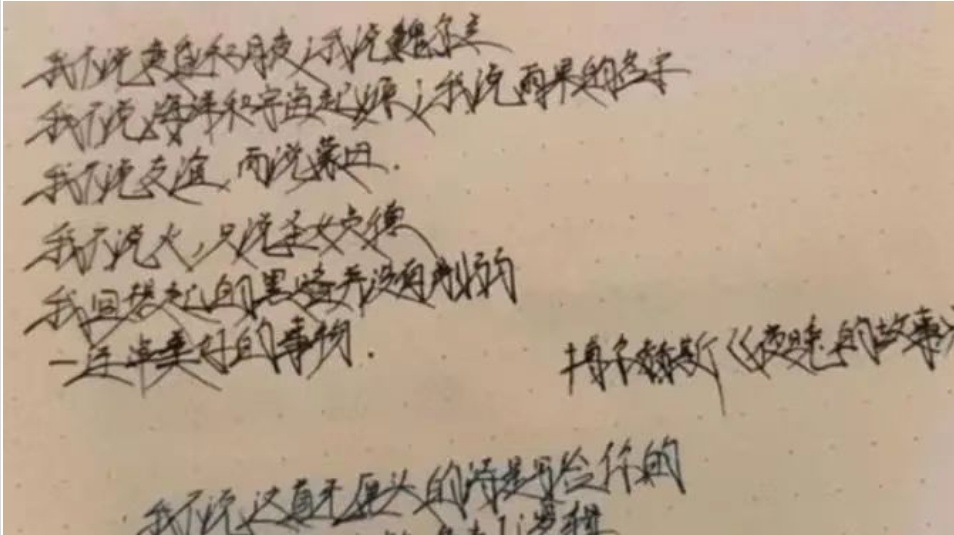 我不说黄昏和月夜；我说魏尔兰
我不说海洋和宇宙起源；我说雨果的名字
我不说友谊，而说蒙田．
我不说火，只说圣女贞德
我回想起的黑暗并没有削弱
一这桩美好的事物．
博尔赫斯《夜晚的故事》
我不说，这真无厘头的诗是写给你的